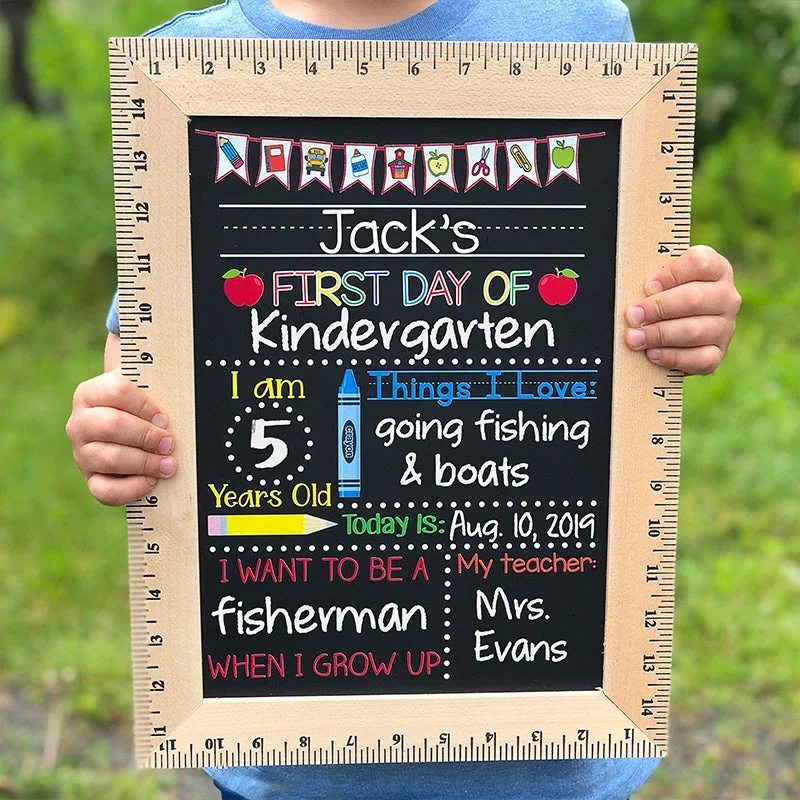 1 2 3 4 5 6 7 8 9 10 11
Jack's
FIRST DAY OF
Kindergarten
I am
5
Years Old
crayon
Things I Love:
going fishing
& boats
Today Is: Aug. 10, 2019
I WANT TO BE A
fisherman
WHEN I GROW UP
My teacher:
Mrs.
Evans
14 13 12 11 10 9 6 5 4 3 2 1
1 2 3 4 7 8 9 10 11 12 13 14
11 10 9 8 7 6 5 4 3 2 1